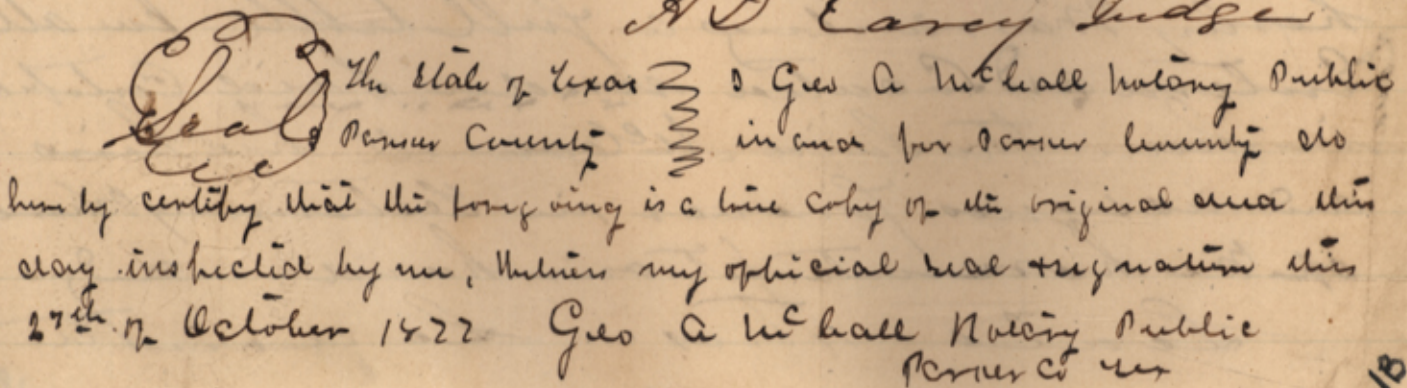 A D Carey Judge
Seal The State of Texas I Geo A McCall Notary Public
Parker County in and for Parker County do
hereby certify that the foregoing is a true copy of the original deed this
day inspected by me, Witness my official seal & signature this
27th of October 1877 Geo A McCall Notary Public
Parker Co Tex